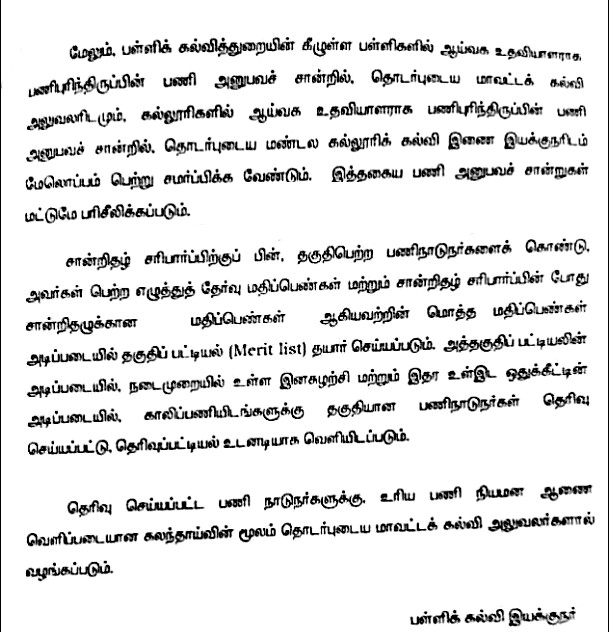 மேலும், பள்ளிக் கல்வித்துறையின் கீழுள்ள பள்ளிகளில் ஆய்வக உதவியாளராக
பணிபுரிந்திருப்பின் பணி அனுபவச் சான்றில், தொடர்புடைய மாவட்டக் கல்வி
அலுவலரிடமும், கல்லூரிகளில் ஆய்வக உதவியாளராக பணிபுரிந்திருப்பின் பணி
அனுபவச் சான்றில், தொடர்புடைய மண்டல கல்லூரிக் கல்வி இணை இயக்குநரிடம்
மேலொப்பம் பெற்று சமர்ப்பிக்க வேண்டும். இத்தகைய பணி அனுபவச் சான்றுகள்
மட்டுமே பரிசீலிக்கப்படும்.
சான்றிதழ் சரிபார்ப்பிற்குப் பின், தகுதிபெற்ற பணிநாடுநர்களைக் கொண்டு,
அவர்கள் பெற்ற எழுத்துத் தேர்வு மதிப்பெண்கள் மற்றும் சான்றிதழ் சரிபார்ப்பின் போது
சான்றிதழுக்கான மதிப்பெண்கள் ஆகியவற்றின் மொத்த மதிப்பெண்கள்
அடிப்படையில் தகுதிப் பட்டியல் (Merit list) தயார் செய்யப்படும். அத்தகுதிப் பட்டியலின்
அடிப்படையில், நடைமுறையில் உள்ள இனசுழற்சி மற்றும் இதர உள்இட ஒதுக்கீட்டின்
அடிப்படையில், காலிப்பணியிடங்களுக்கு தகுதியான பணிநாடுநர்கள் தெரிவு
செய்யப்பட்டு, தெரிவுப்பட்டியல் உடனடியாக வெளியிடப்படும்.
தெரிவு செய்யப்பட்ட பணி நாடுநர்களுக்கு, உரிய பணி நியமன ஆணை
வெளிப்படையான கலந்தாய்வின் மூலம் தொடர்புடைய மாவட்டக் கல்வி அலுவலர்களால்
வழங்கப்படும்.
பள்ளிக் கல்வி இயக்குநர்